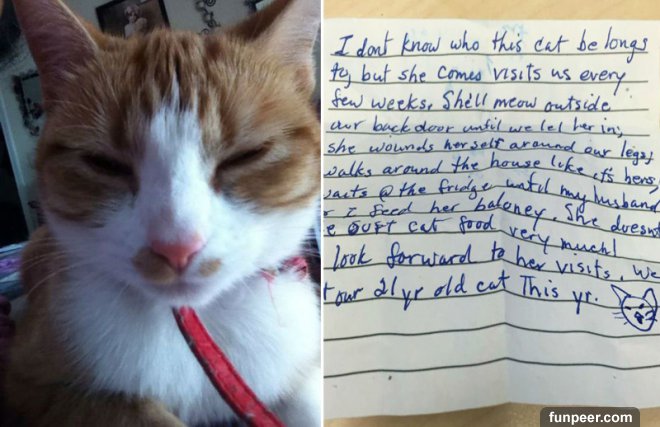 I dont know who this cat belongs
to, but she comes visits us every
few weeks, She'll meow outside
our back door until we let her in,
she wounds herself around our legs,
walks around the house like it's hers,
waits @ the fridge until my husband
I feed her baloney. She doesnt
cat food very much!
look forward to her visits. We
our 21 yr old cat This yr.
funpeer.com